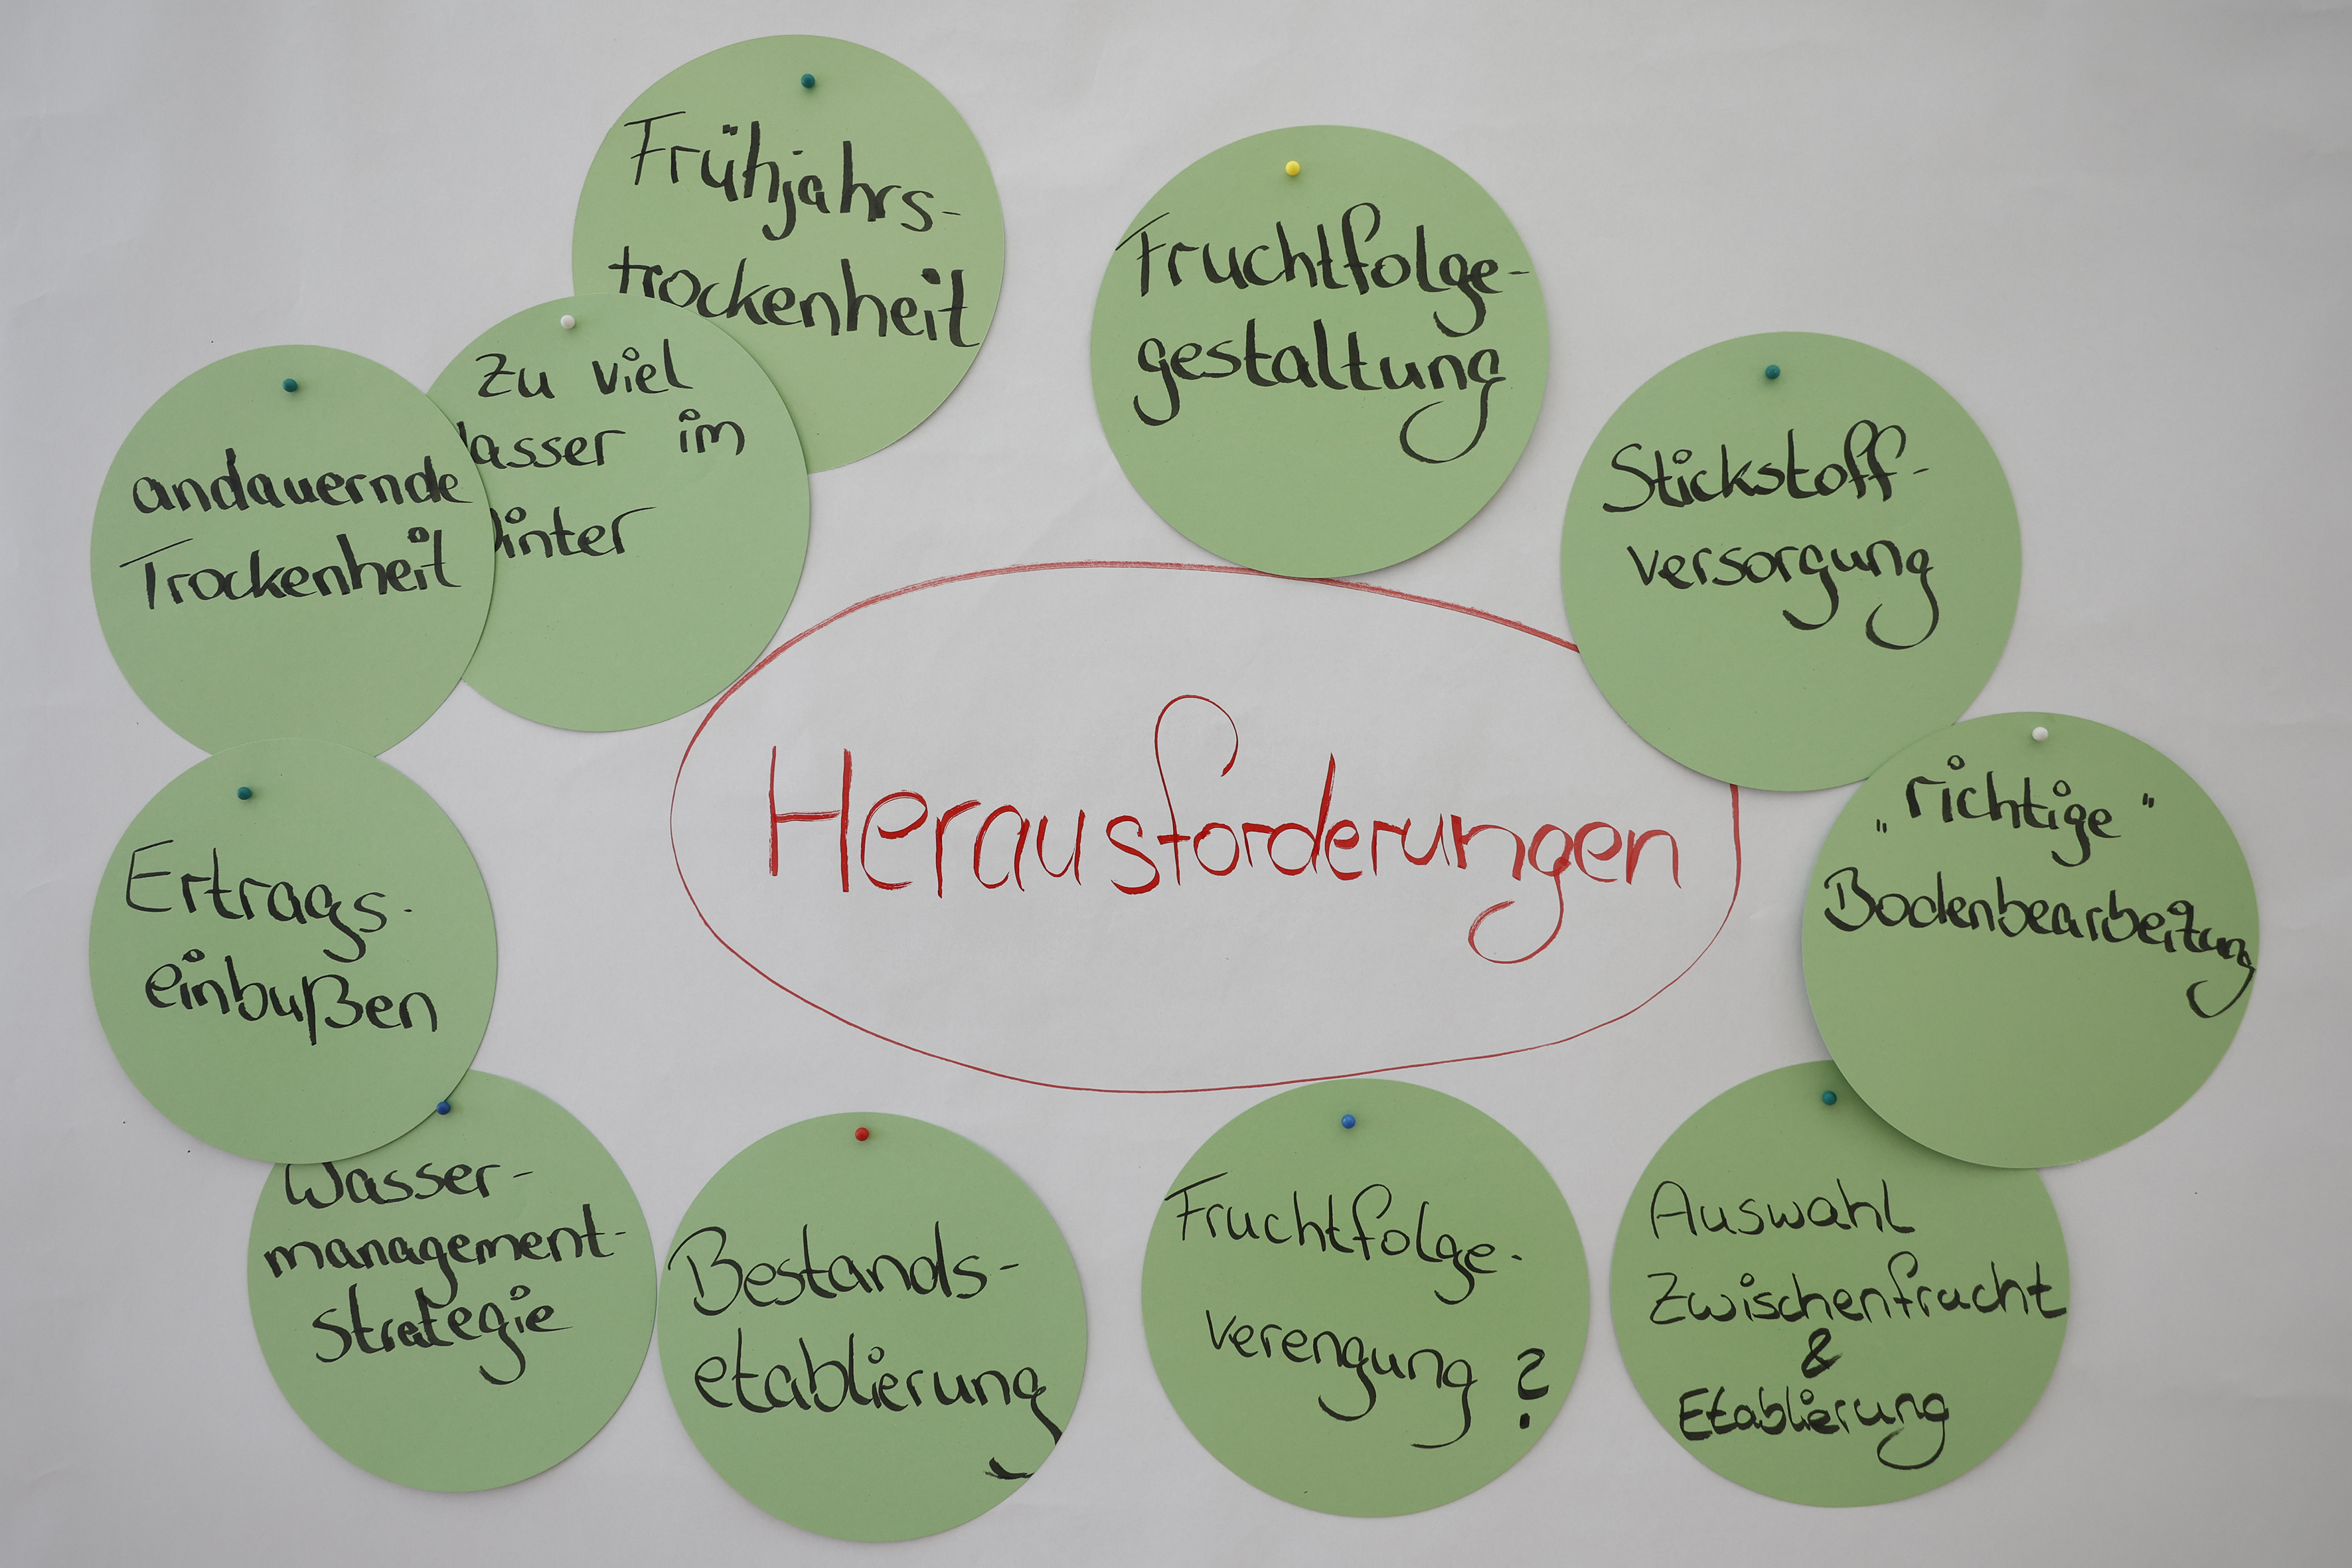 Frühjahrs-
trockenheit
Fruchtfolge-
gestaltung
Zu viel
asser im
inter
andauernde
Trockenheit
Stickstoff-
versorgung
Herausforderungen
„richtige"
Bodenbearbeitung
Ertrags-
einbußen
Wasser-
management-
strategie
Bestands-
etablierung
Fruchtfolge-
verengung ?
Auswahl
Zwischenfrucht
&
Etablierung